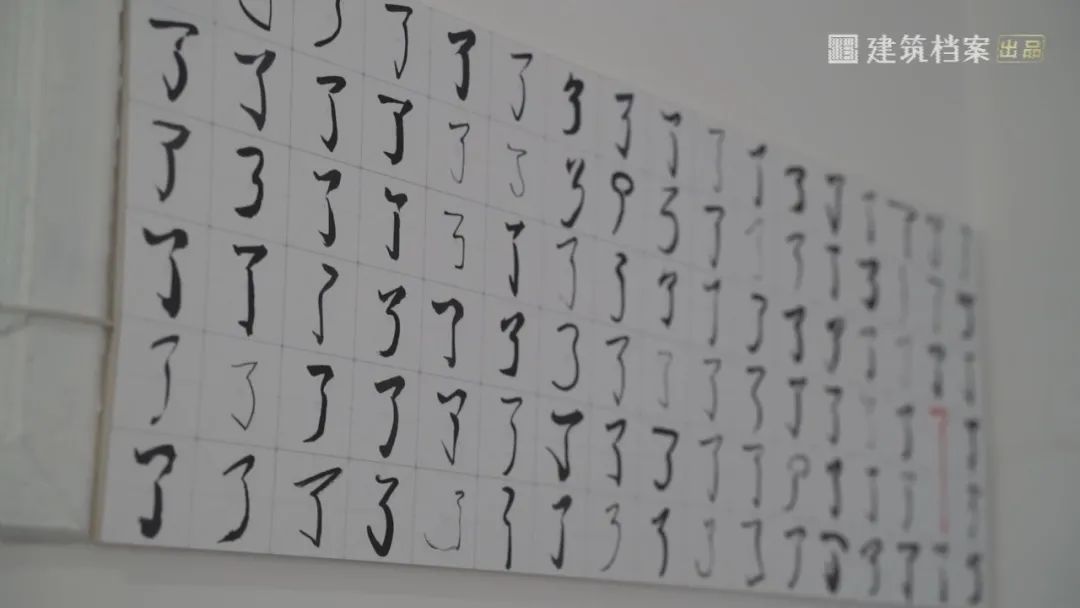 建筑档案 出品
了了了了了了了了了了了了了了
了了了了了了了了了了了了了了了
了了了了了了了了了了了了了了了
了了了了了了了了了了了了了了了
了了了了了了了了了了了了了了了
了了了了了了了了了了了了了了了